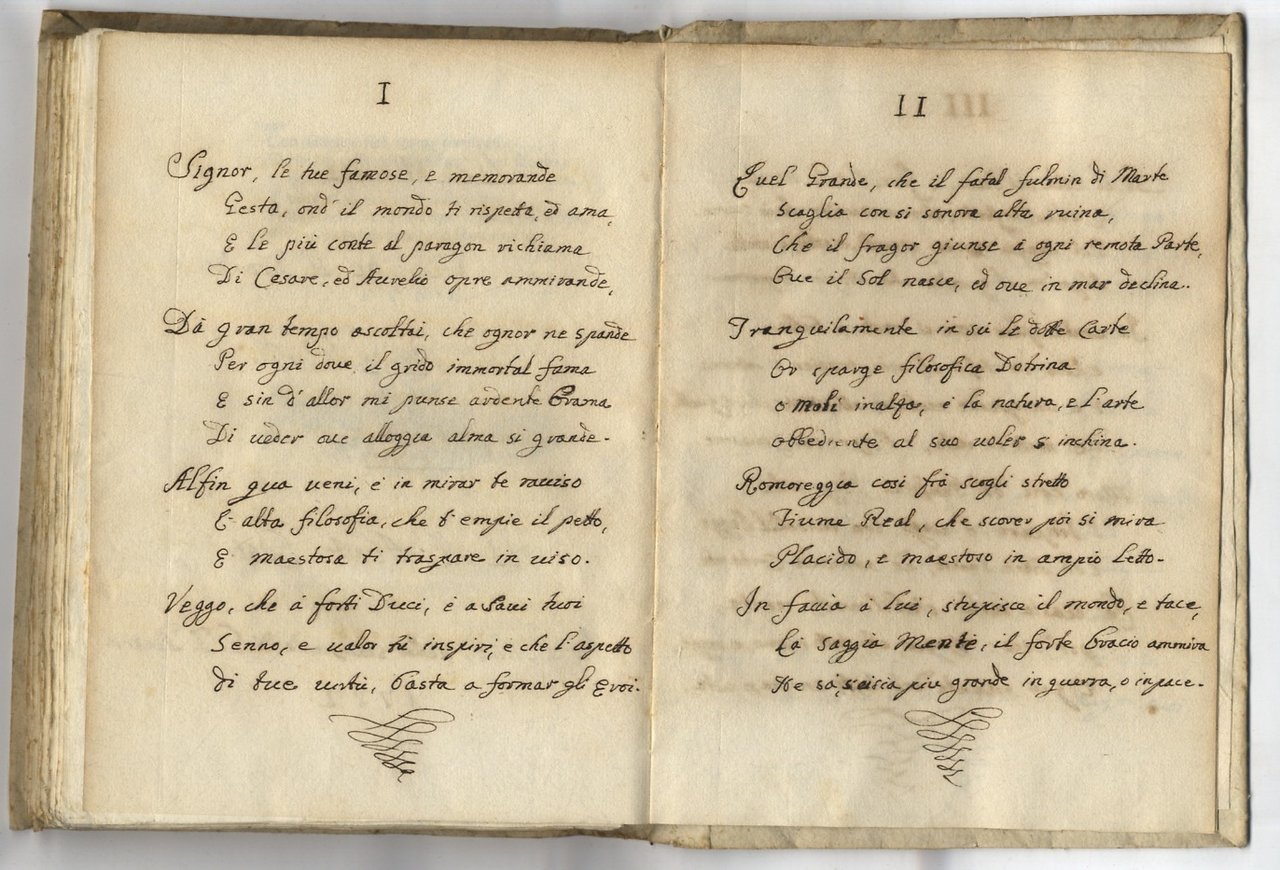 I
Signor, le tue famose, e memorande
Gesta, ond' il mondo ti rispetta, ed ama,
E le più conte al paragon richiama
Di Cesare, ed Aurelio opre ammirande,
Dà gran tempo ascoltai, che ognor ne spande
Per ogni dove il grido immortal fama
E sin d'allor mi punse ardente brama
Di veder ove alloggia alma si grande.
Alfin qua veni, è in mirar te raviso
L'alta filosofia, che t'empie il petto,
E maestosa ti traspare in viso.
Veggo, che à forti Duci, è a Savi tuoi
Senno, e valor tù inspiri, e che l'aspetto
di tue virtù, basta a formar gli Eroi.
II
Quel Grande, che il fatal fulmin di Marte
Scaglia con si sonora alta ruina,
Che il fragor giunse à ogni remota Parte,
Ove il Sol nasce, ed ove in mar declina.
Tranquilamente in sù le dotte Carte
Or sparge filosofica Dotrina
o moli inalza, è la natura, e l'arte
obbediente al suo voler s'inchina.
Romoreggia così frà scogli stretto
Fiume Real, che scorer poi si mira
Placido, e maestoso in ampio letto.
In faccia à lui, stupisce il mondo, e tace,
La saggia Mente, il forte bracio ammira
Ne sà, se sia piu grande in guerra, o in pace.